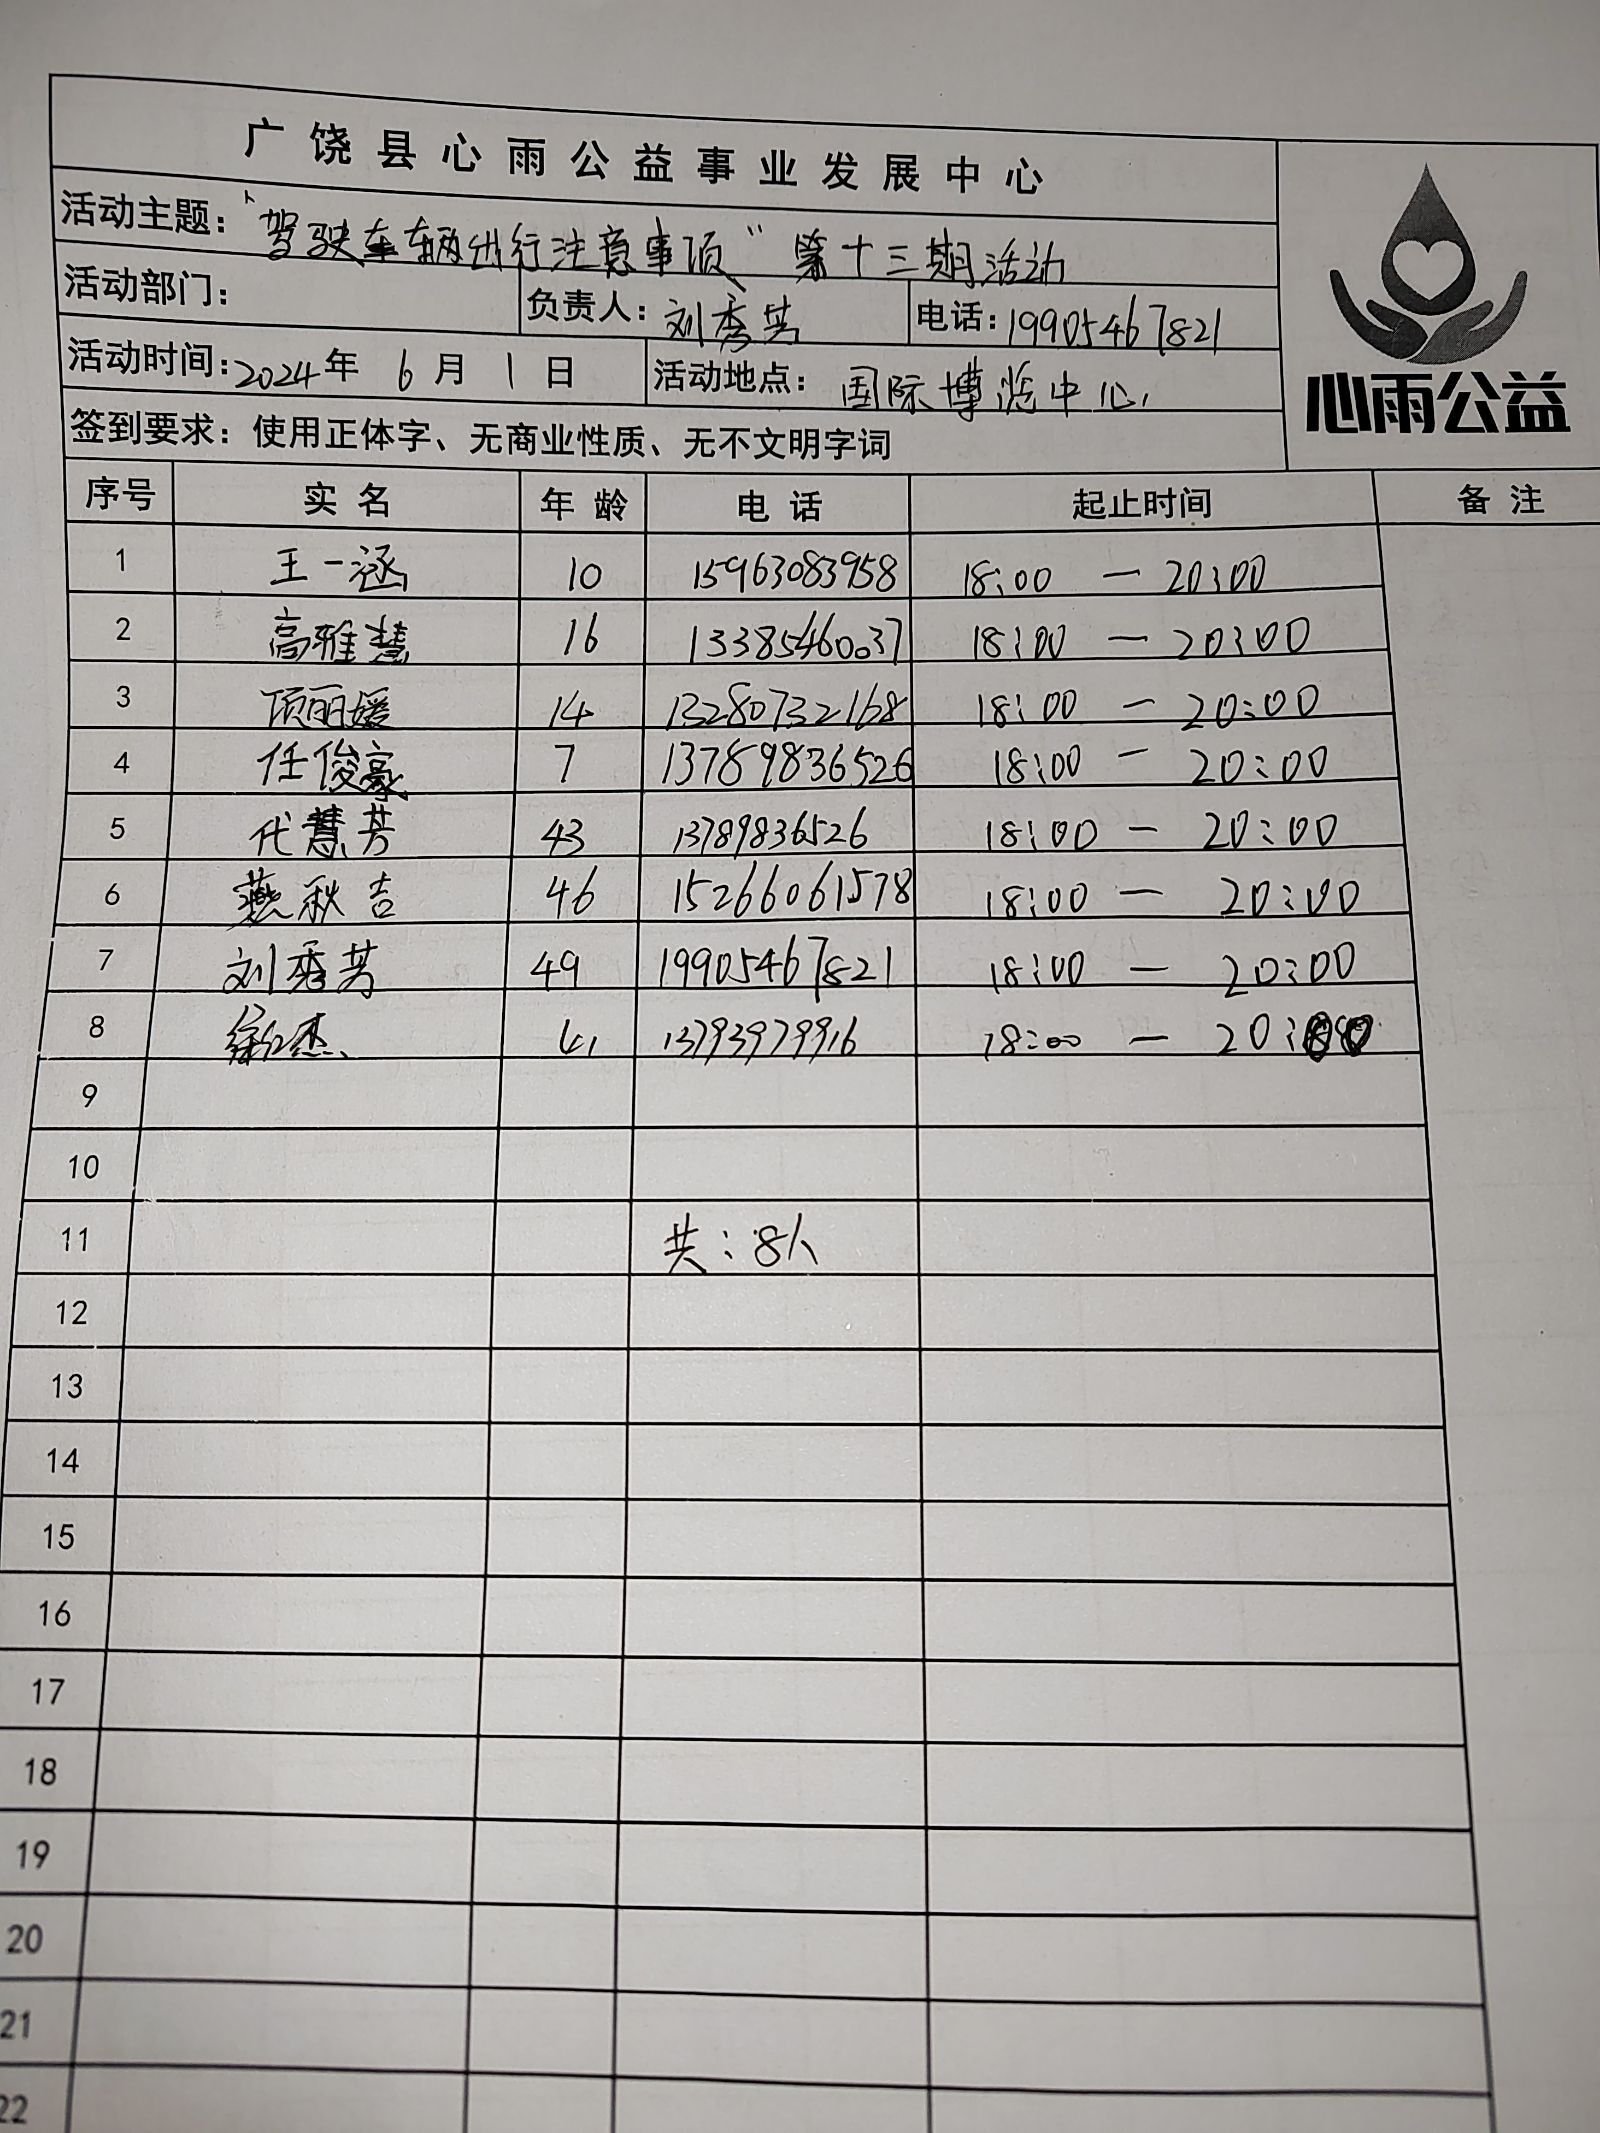 广饶县心雨公益事业发展中心
活动主题：“驾驶车辆出行注意事项”第十三期活动
活动部门： 负责人：刘秀芳 电话：19905467821
活动时间：2024年 6月 1日 活动地点：国际博览中心
心雨公益
签到要求：使用正体字、无商业性质、无不文明字词
序号 实名 年龄 电话 起止时间 备注
1 王一涵 10 15963083958 18:00 — 20:00
2 高雅慧 16 13385460037 18:00 — 20:00
3 项丽媛 14 13280732168 18:00 — 20:00
4 任俊豪 7 13789836526 18:00 — 20:00
5 代慧芳 43 13789836526 18:00 — 20:00
6 燕秋吉 46 15266061578 18:00 — 20:00
7 刘秀芳 49 19905467821 18:00 — 20:00
8 徐红杰 41 13793979916 18:00 — 20:00
9
10
11 共：8人
12
13
14
15
16
17
18
19
20
21
22